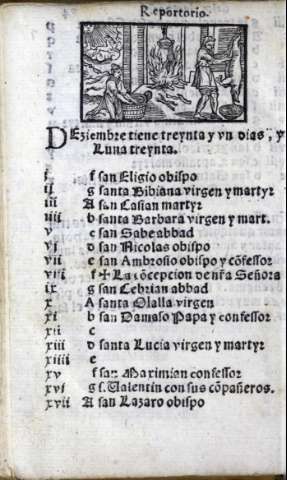 Reportorio.
DEziembre tiene treynta y vn dias, y
Luna treynta.
i f san Eligio obispo
ii g santa Bibiana virgen y martyr
iii A san Casian martyr
iiii b santa Barbara virgen y mart.
v c san Sabe abbad
vi d san Nicolas obispo
vii e san Ambrosio obispo y cõfessor
viii f ✠ La cõcepcion de nr̃a Señora
ix g san Cebrian abbad
x A santa Olalla virgen
xi b san Damaso Papa y confessor
xii c
xiii d santa Lucia virgen y martyr
xiiii e
xv f san Maximian confessor
xvi g s. Valentin con sus cõpañeros.
xvii A san Lazaro obispo